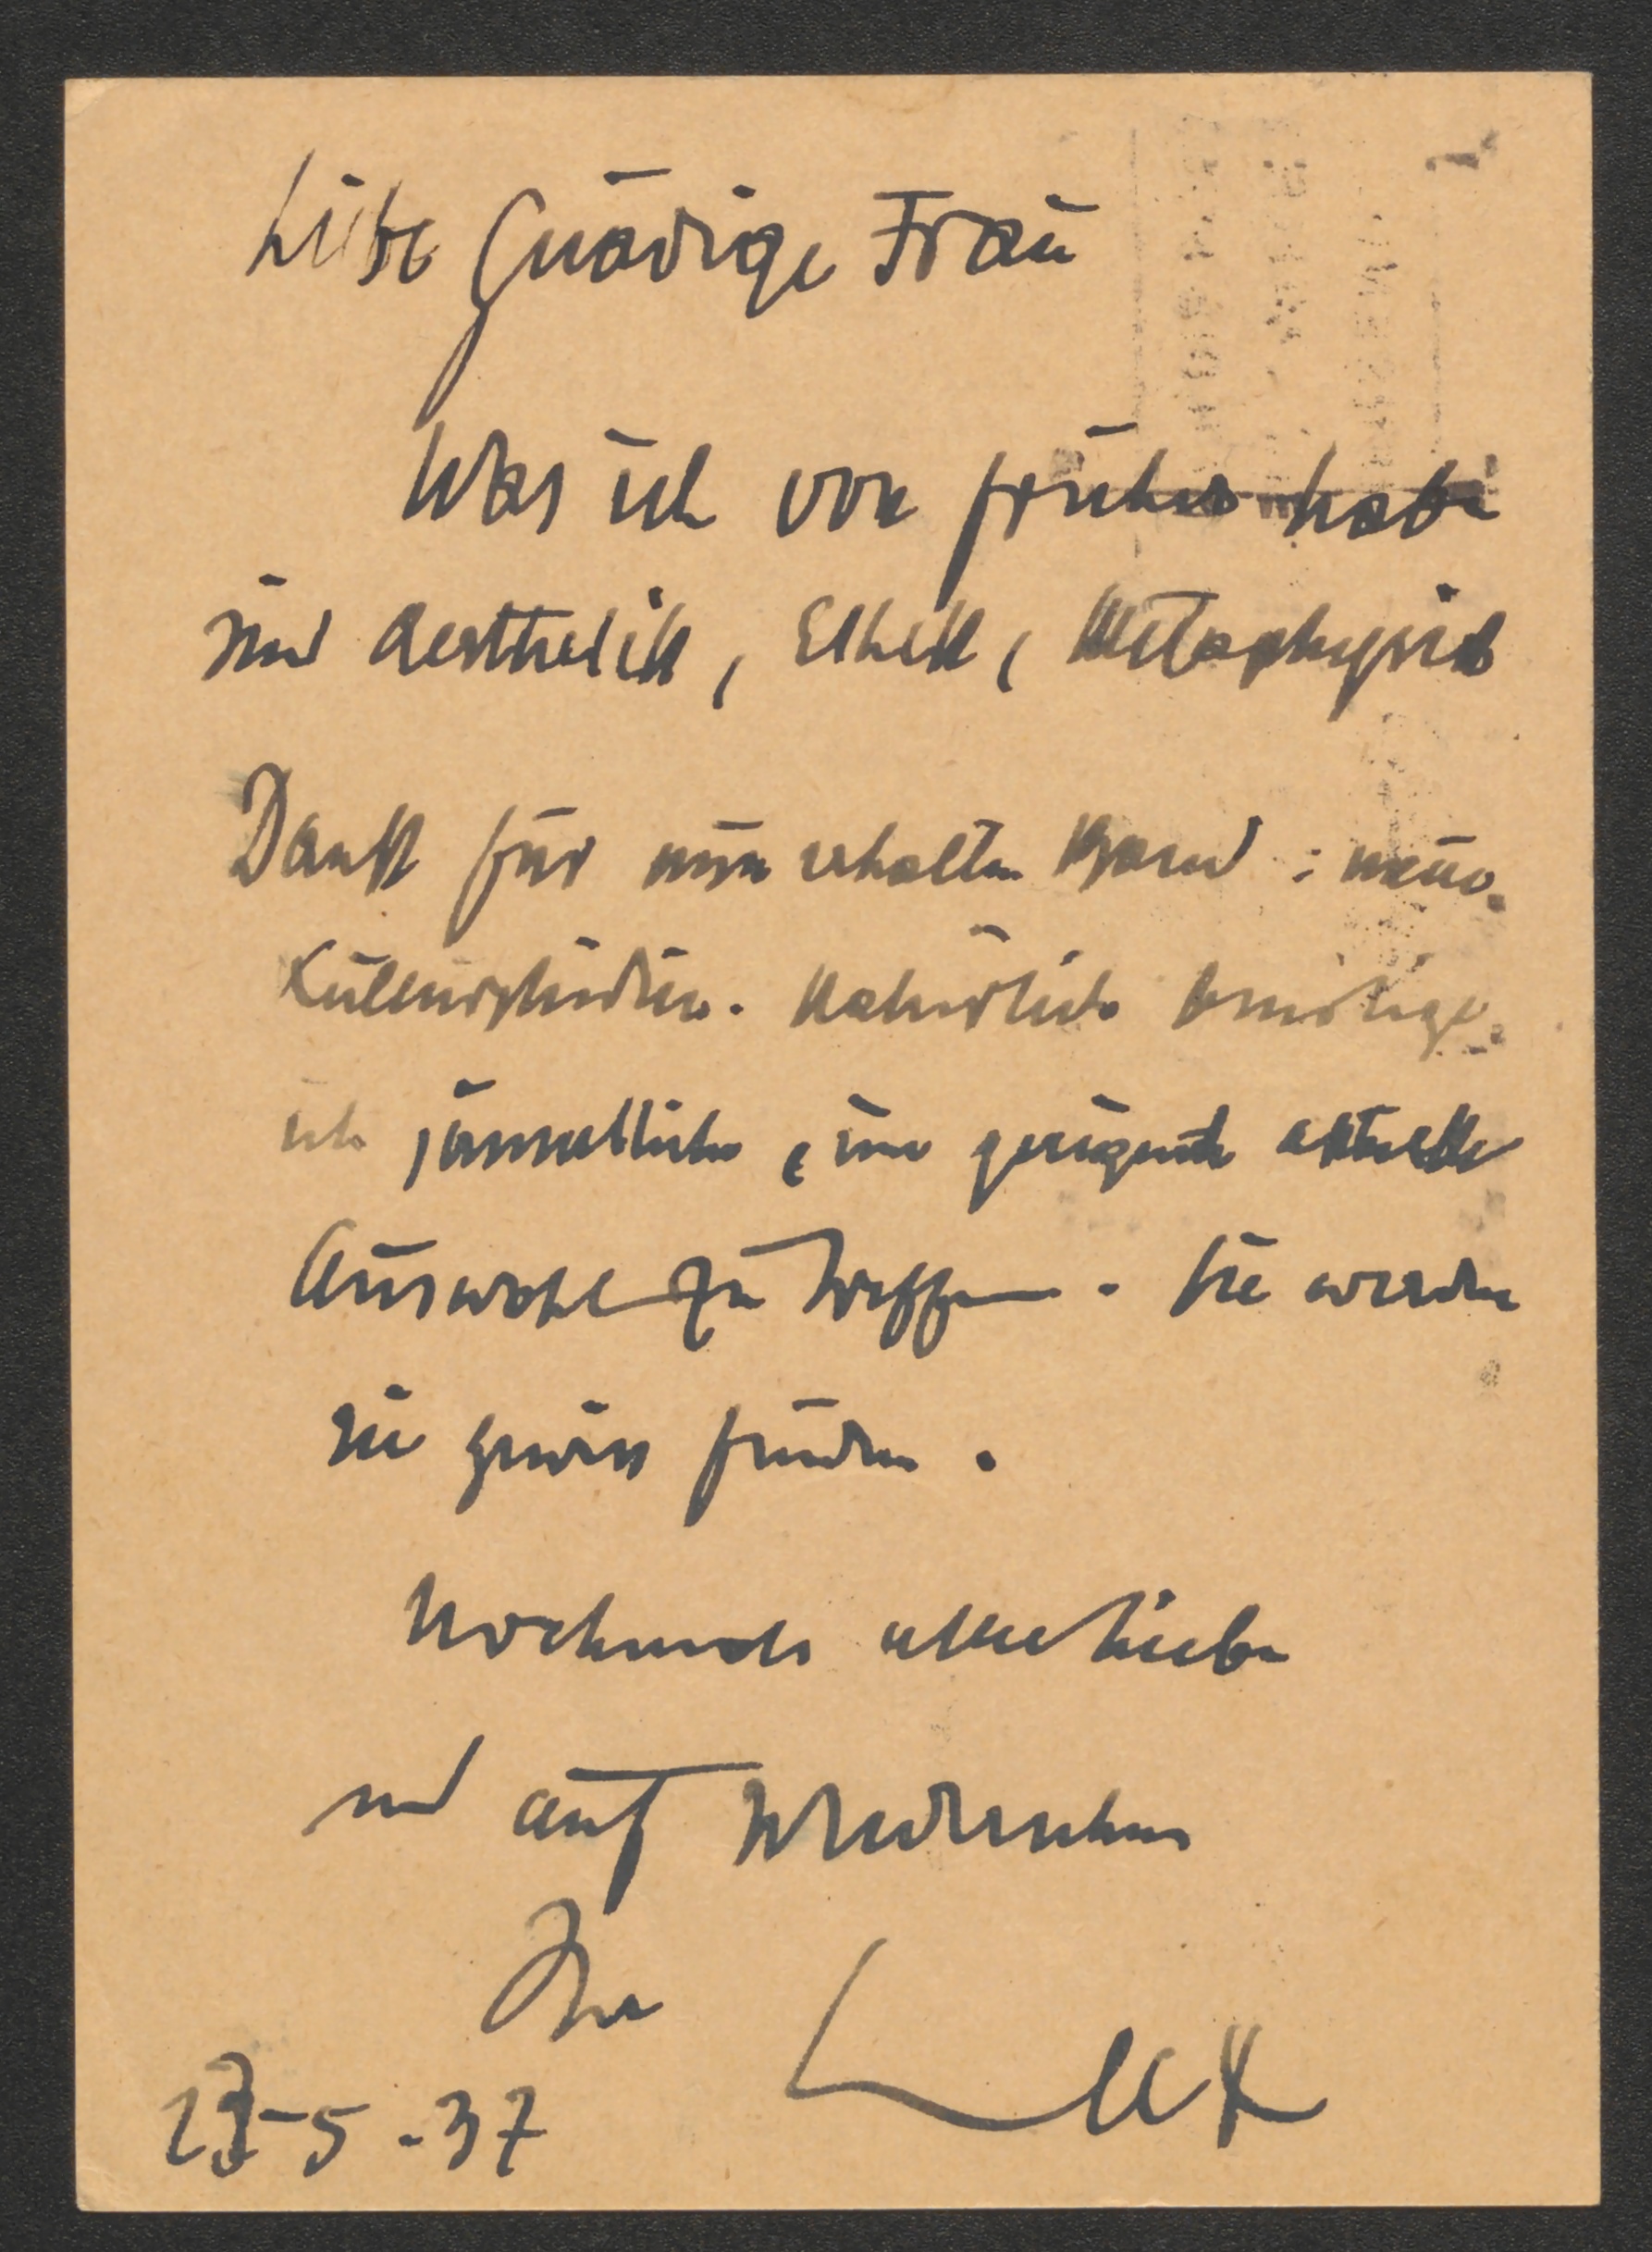 Liebe Gnädige Frau
Was ich von früher habe
sind Aesthetik, Ethik, Metaphysik
Dank für nun erhalten Band :
Kulturstudien. Natürlich benötige
ich sämmtliche, um genügende aktuelle
Auswahl zu treffen. Sie werden
sie gewiss finden.
Nochmals alles Liebe
und auf Wiedersehen
Ihr
23-5-37